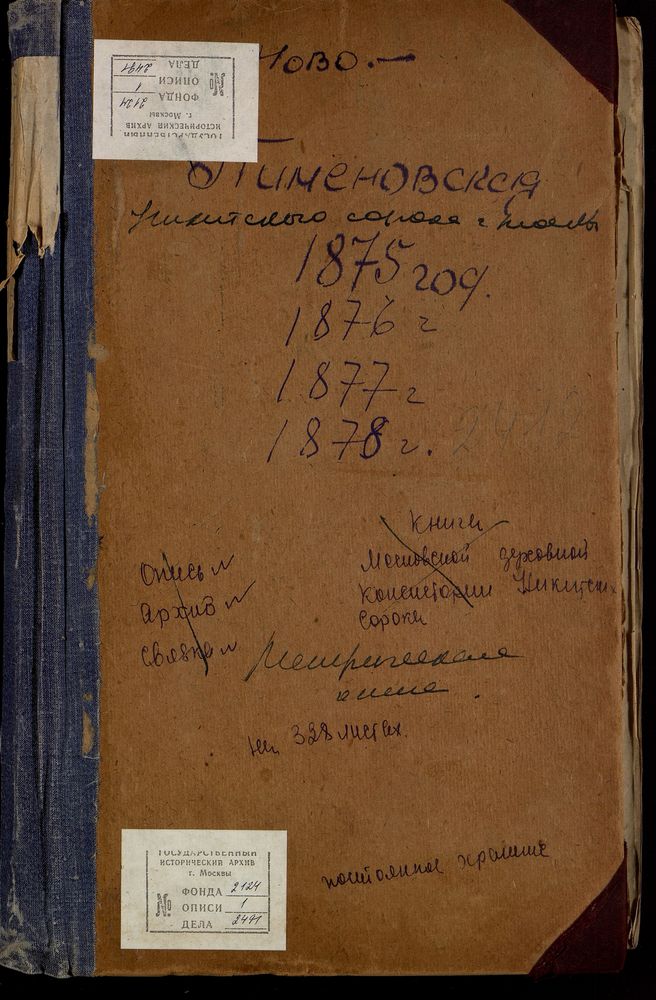 Ново.-
ГОСУДАРСТВЕННЫЙ
ИСТОРИЧЕСКИЙ АРХИВ
г. Москвы
ФОНДА 2124
№ ОПИСИ 1
ДЕЛА 2491
Пименовская
Никитского сорока г. Москвы
1875 год.
1876 г
1877 г
1878 г. 2412
Книги
Опись №
Московской духовной
Архив №
Консистории Никитск
Связка №
Сорока
Метрическая
книга.
на 328 листах.
постоянное хранение
ГОСУДАРСТВЕННЫЙ
ИСТОРИЧЕСКИЙ АРХИВ
г. Москвы
ФОНДА 2124
№ ОПИСИ 1
ДЕЛА 2491